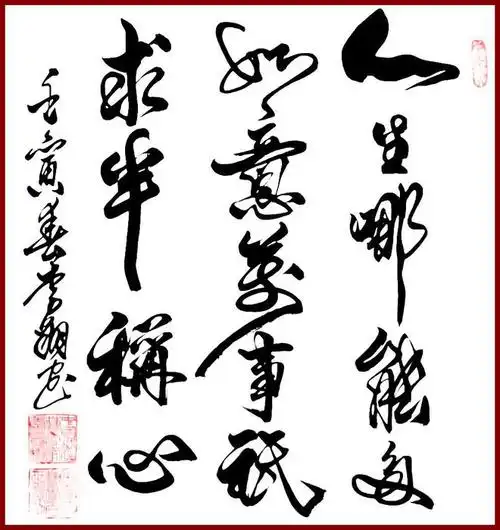 人生哪能多
如意萬事祇
求半稱心
壬寅春